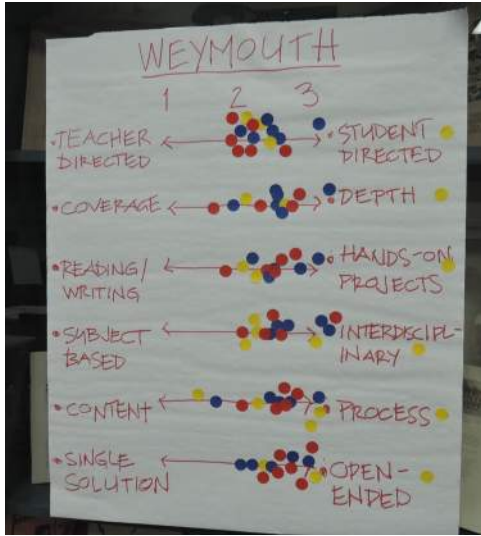 WEYMOUTH
1 2 3
TEACHER DIRECTED
STUDENT DIRECTED
COVERAGE
DEPTH
READING/ WRITING
HANDS-ON PROJECTS
SUBJECT BASED
INTERDISCIPL- INARY
CONTENT
PROCESS
SINGLE SOLUTION
OPEN- ENDED